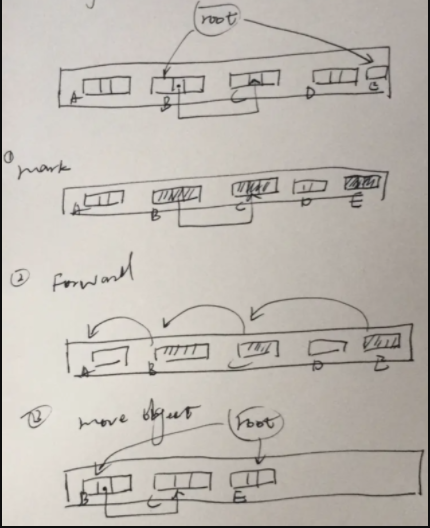 root
A B C D E
① mark
A B C D E
② Forward
A B C D E
③ move object
root
B C E